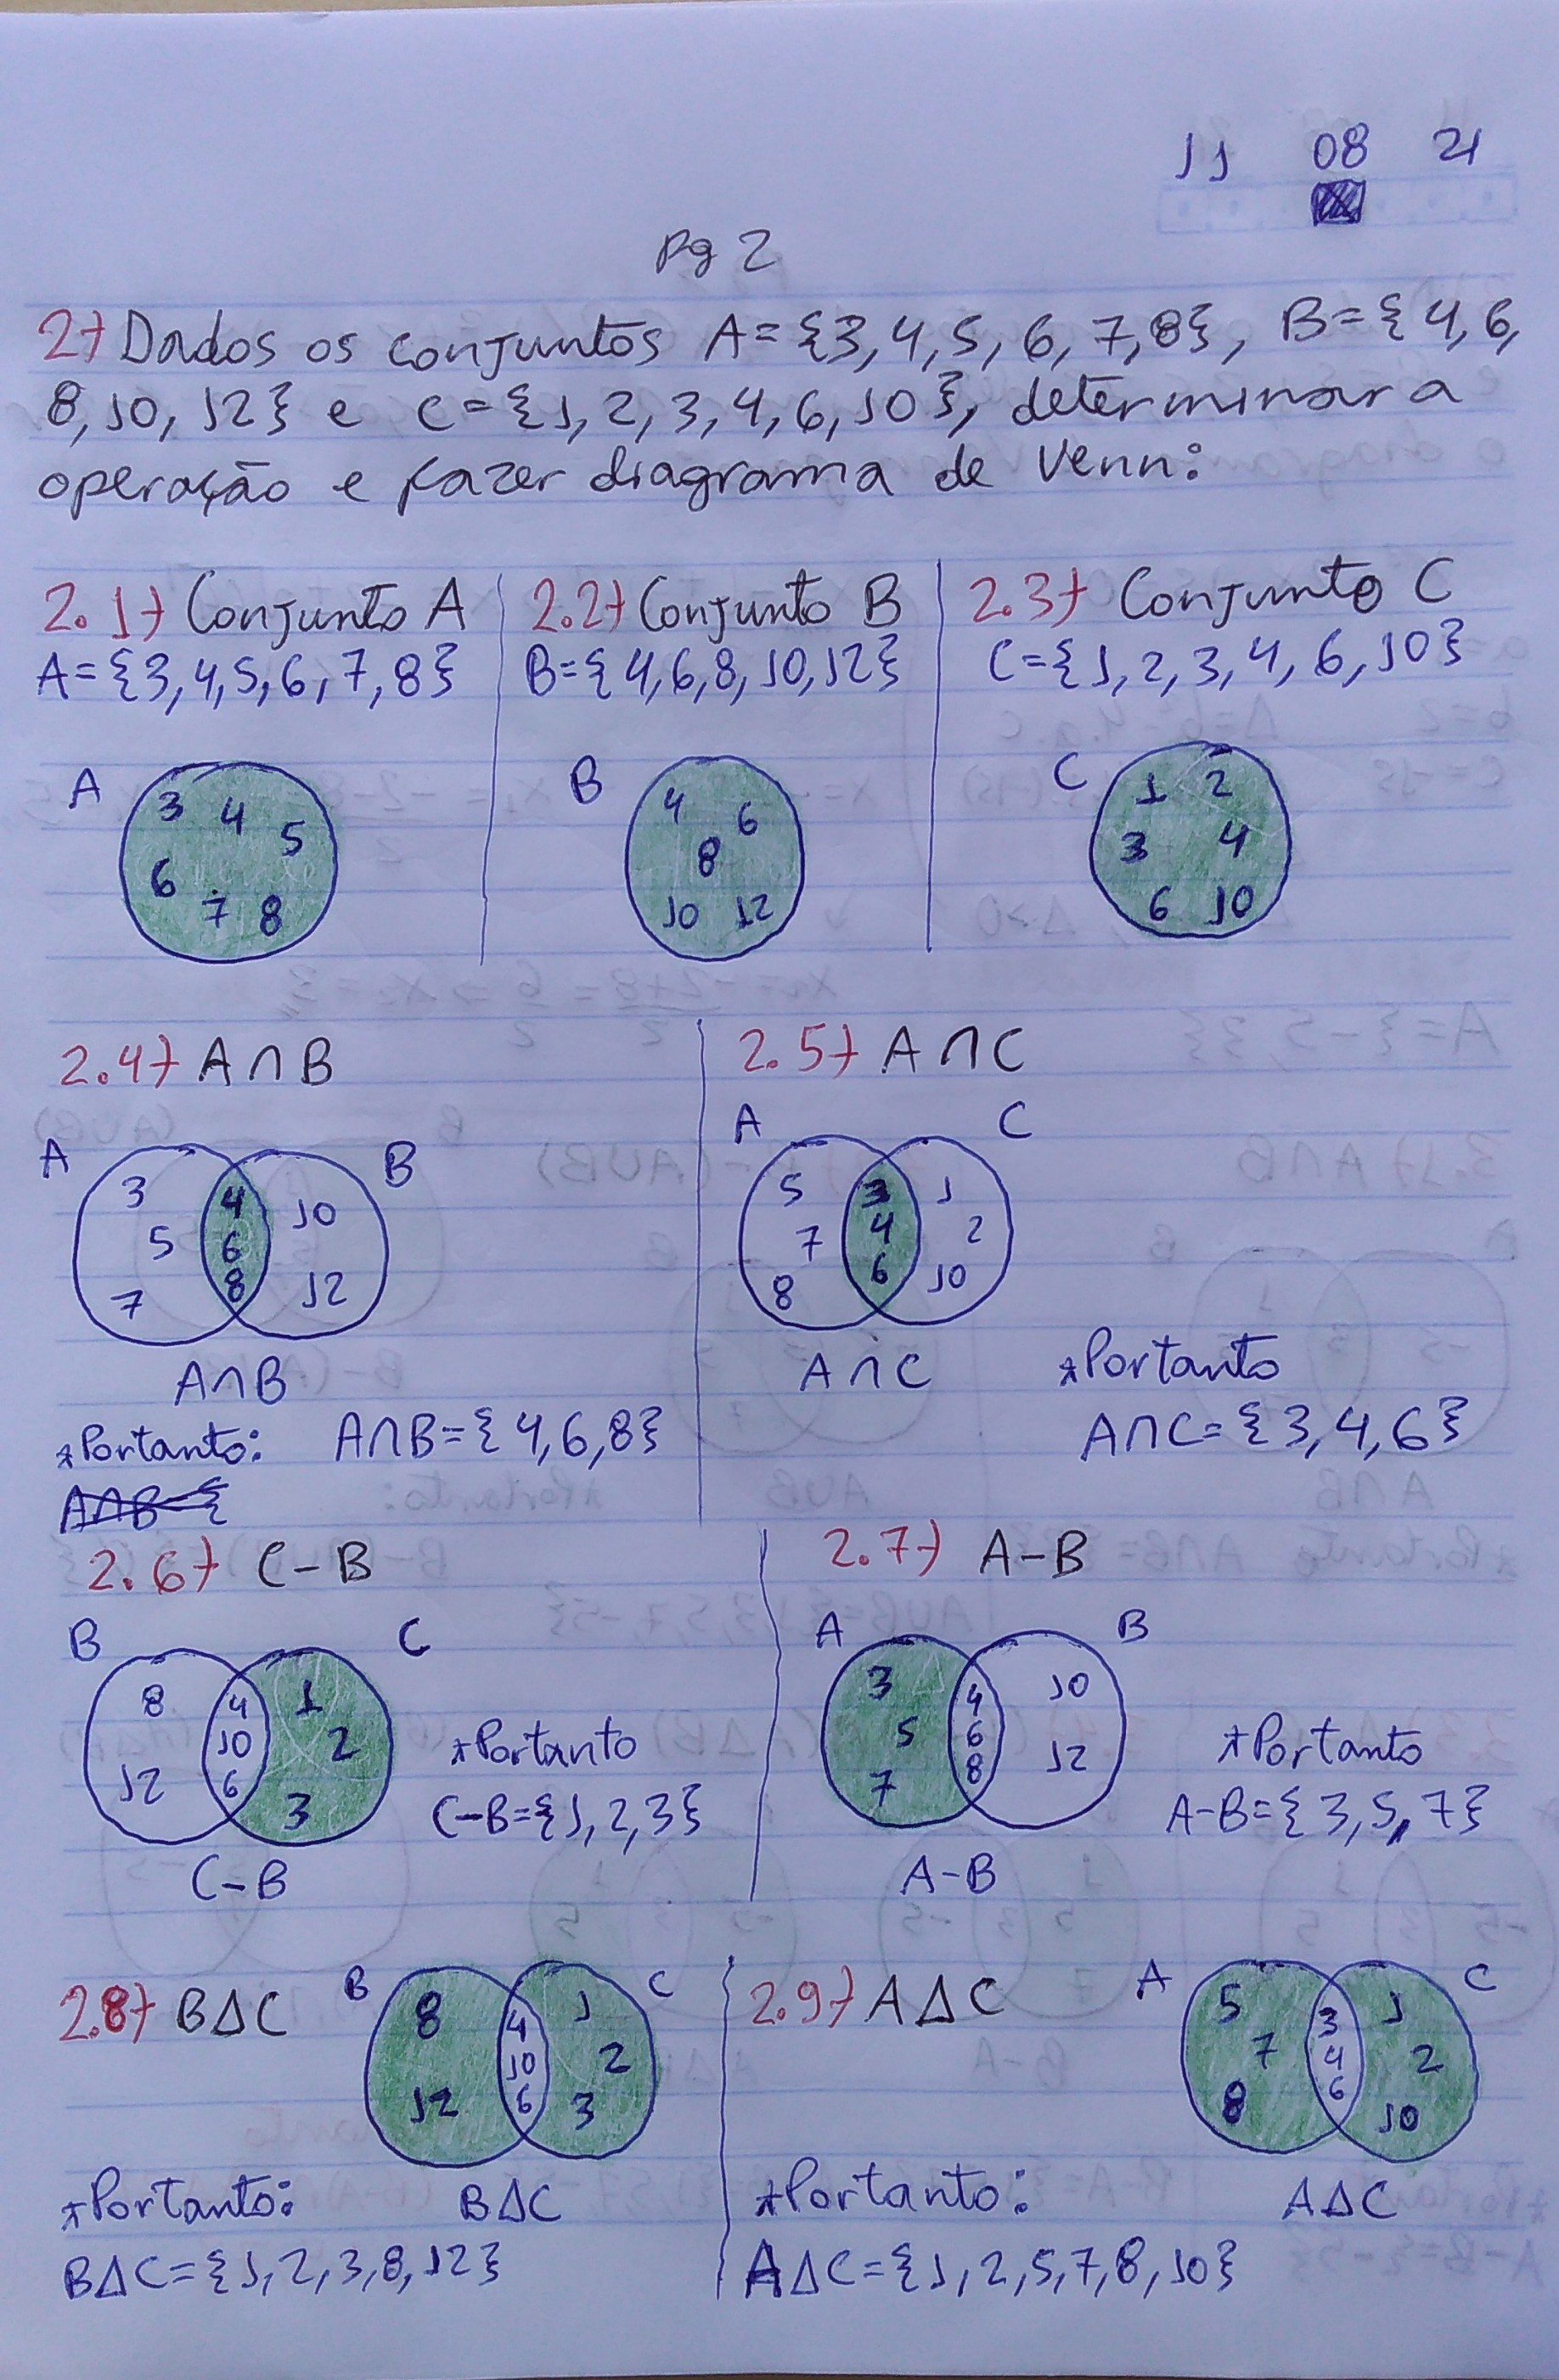 11 08 21
Pg 2
2) Dados os conjuntos A={3,4,5,6,7,8}, B={4,6,
8,10,12} e C={1,2,3,4,6,10}, determinar a
operação e fazer diagrama de Venn:
2.1) Conjunto A
A={3,4,5,6,7,8}
A
3 4 5
6 7 8
2.2) Conjunto B
B={4,6,8,10,12}
B
4 6
8
10 12
2.3) Conjunto C
C={1,2,3,4,6,10}
C
1 2
3 4
6 10
2.4) A∩B
A B
3 4 10
5 6
7 8 12
A∩B
*Portanto: A∩B={4,6,8}
2.5) A∩C
A C
5 3 1
7 4 2
8 6 10
A∩C
*Portanto
A∩C={3,4,6}
2.6) C-B
B C
8 4 1
10 2
12 6 3
C-B
*Portanto
C-B={1,2,3}
2.7) A-B
A B
3 4 10
5 6
7 8 12
A-B
*Portanto
A-B={3,5,7}
2.8) BΔC
B C
8 4 1
10 2
12 6 3
BΔC
*Portanto:
BΔC={1,2,3,8,12}
2.9) AΔC
A C
5 3 1
7 4 2
8 6 10
AΔC
*Portanto:
AΔC={1,2,5,7,8,10}